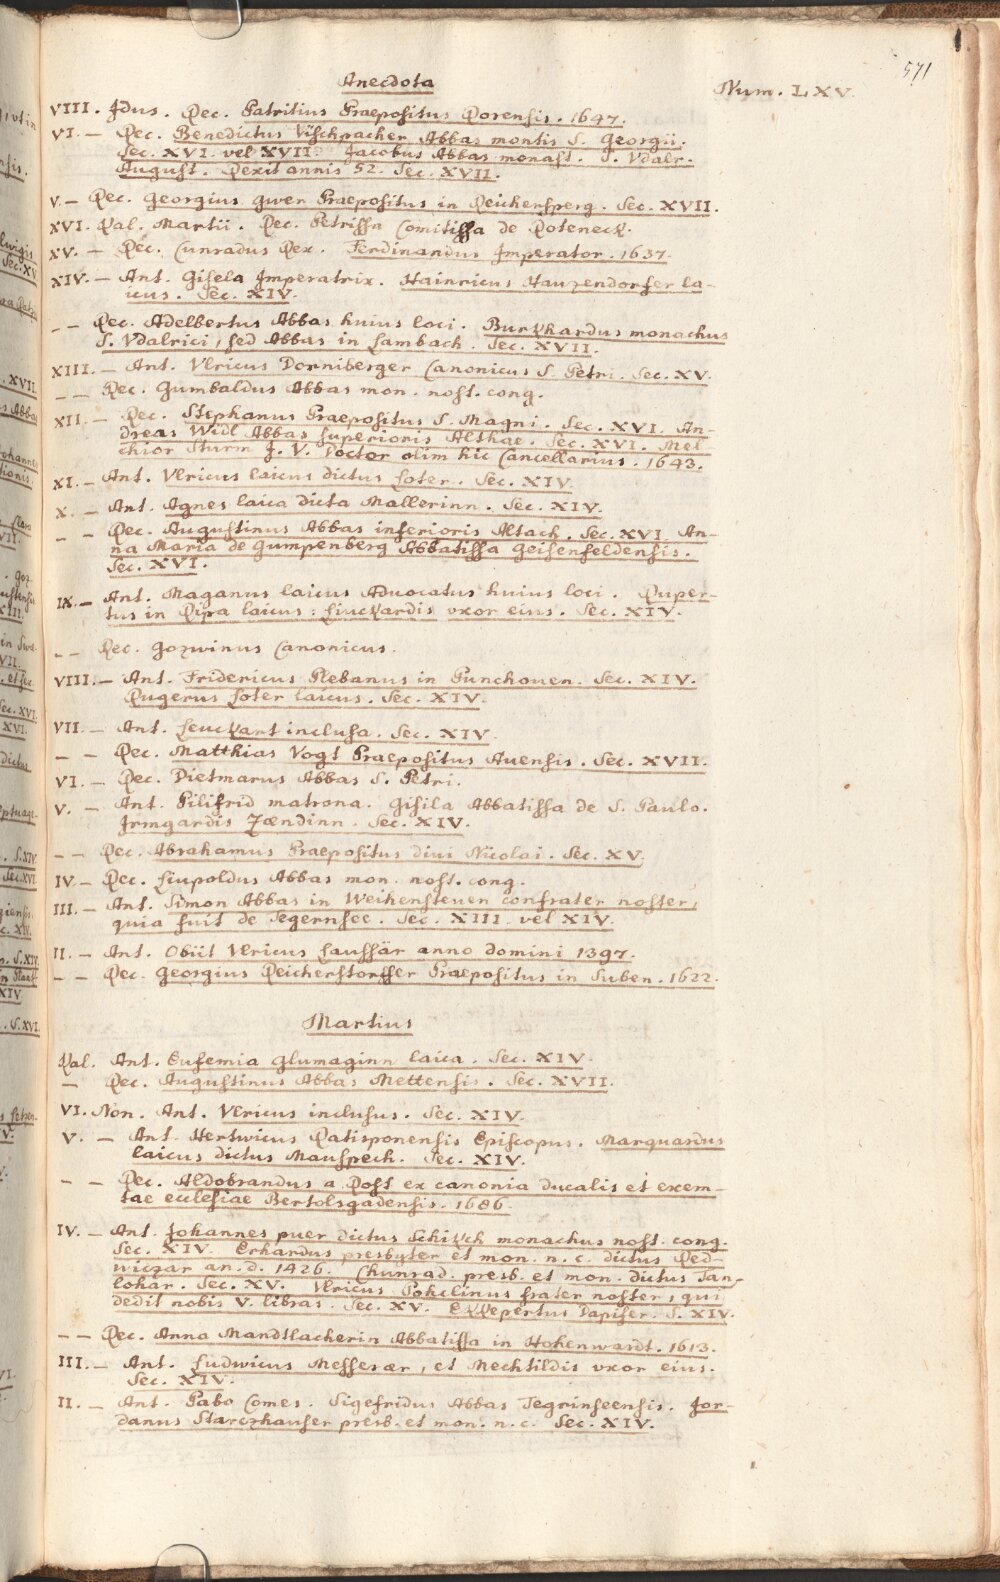 571
Anecdota
Num. LXV.
VIII. Idus. Rec. Patritius Praepositus Rorensis. 1647.
VI. — Rec. Benedictus Vischpacher Abbas montis S. Georgii.
Sec. XVI. vel XVII. Jacobus Abbas monast. S. Vdalr.
August. Rexit annis 52. Sec. XVII.
V. — Rec. Georgius Gwer Praepositus in Reichersperg. Sec. XVII.
XVI. Kal. Martii. Rec. Petrissa Comitissa de Roteneck.
XV. — Rec. Cunradus Rex. Ferdinandus Imperator. 1637.
XIV. — Ant. Gisela Imperatrix. Hainricus Hauzendorfer la-
icus. Sec. XIV.
— — Rec. Adelbertus Abbas huius loci. Burkhardus monachus
S. Vdalrici, sed Abbas in Lambach. Sec. XVII.
XIII. — Ant. Vlricus Dorniberger Canonicus S. Petri. Sec. XV.
— — Rec. Gumbaldus Abbas mon. nost. cong.
XII. — Rec. Stephanus Praepositus S. Magni. Sec. XVI. An-
dreas Widl Abbas superioris Althae. Sec. XVI. Mel
chior Sturm J. V. Doctor olim hic Cancellarius. 1643.
XI. — Ant. Vlricus laicus dictus Loter. Sec. XIV.
X. — Ant. Agnes laica dicta Mallerinn. Sec. XIV.
— — Rec. Augustinus Abbas inferioris Altach. Sec. XVI. An-
na Maria de Gumpenberg Abbatissa Geisenfeldensis.
Sec. XVI.
IX. — Ant. Maganus laicus Aduocatus huius loci. Ruper-
tus in Ripa laicus: Liuckardis vxor eius. Sec. XIV.
— — Rec. Gozwinus Canonicus.
VIII. — Ant. Fridericus Plebanus in Punchouen. Sec. XIV.
Rugerus Loter laicus. Sec. XIV.
VII. — Ant. Leuckart inclusa. Sec. XIV.
— — Rec. Matthias Vogt Praepositus Auensis. Sec. XVII.
VI. — Rec. Dietmarus Abbas S. Petri.
V. — Ant. Pilifrid matrona. Gisila Abbatissa de S. Paulo.
Irmgardis Zændinn. Sec. XIV.
— — Rec. Abrahamus Praepositus diui Nicolai. Sec. XV.
IV. — Rec. Liupoldus Abbas mon. nost. cong.
III. — Ant. Simon Abbas in Weihensteuen confrater noster,
quia fuit de Tegernsee. Sec. XIII. vel XIV.
II. — Ant. Obiit Vlricus Laussär anno domini 1397.
— — Rec. Georgius Reicherstorffer Praepositus in Suben. 1622.
Martius
Kal. Ant. Eufemia Glumaginn laica. Sec. XIV.
— Rec. Augustinus Abbas Mettensis. Sec. XVII.
VI. Non. Ant. Vlricus inclusus. Sec. XIV.
V. — Ant. Hertwicus Ratisponensis Episcopus. Marquardus
laicus dictus Mauspeck. Sec. XIV.
— — Rec. Aldobrandus a Rost ex canonia ducalis et exem-
tae ecclesiae Bertolsgadensis. 1686.
IV. — Ant. Johannes puer dictus Schikch monachus nost. cong.
Sec. XIV. Erhardus presbyter et mon. n. c. dictus Red-
wiczar an. d. 1426. Chunrad. presb. et mon. dictus Tan-
lohar. Sec. XV. Vlricus Pohelinus frater noster, qui
dedit nobis V. libras. Sec. XV. Ekkepertus Dapifer. S. XIV.
— — Rec. Anna Mandlacherin Abbatissa in Hohenwardt. 1613.
III. — Ant. Ludwicus Messerær, et Mechtildis vxor eius.
Sec. XIV.
II. — Ant. Pabo Comes. Sigefridus Abbas Tegrinseensis. Jor-
danus Starczhauser presb. et mon. n. c. Sec. XIV.